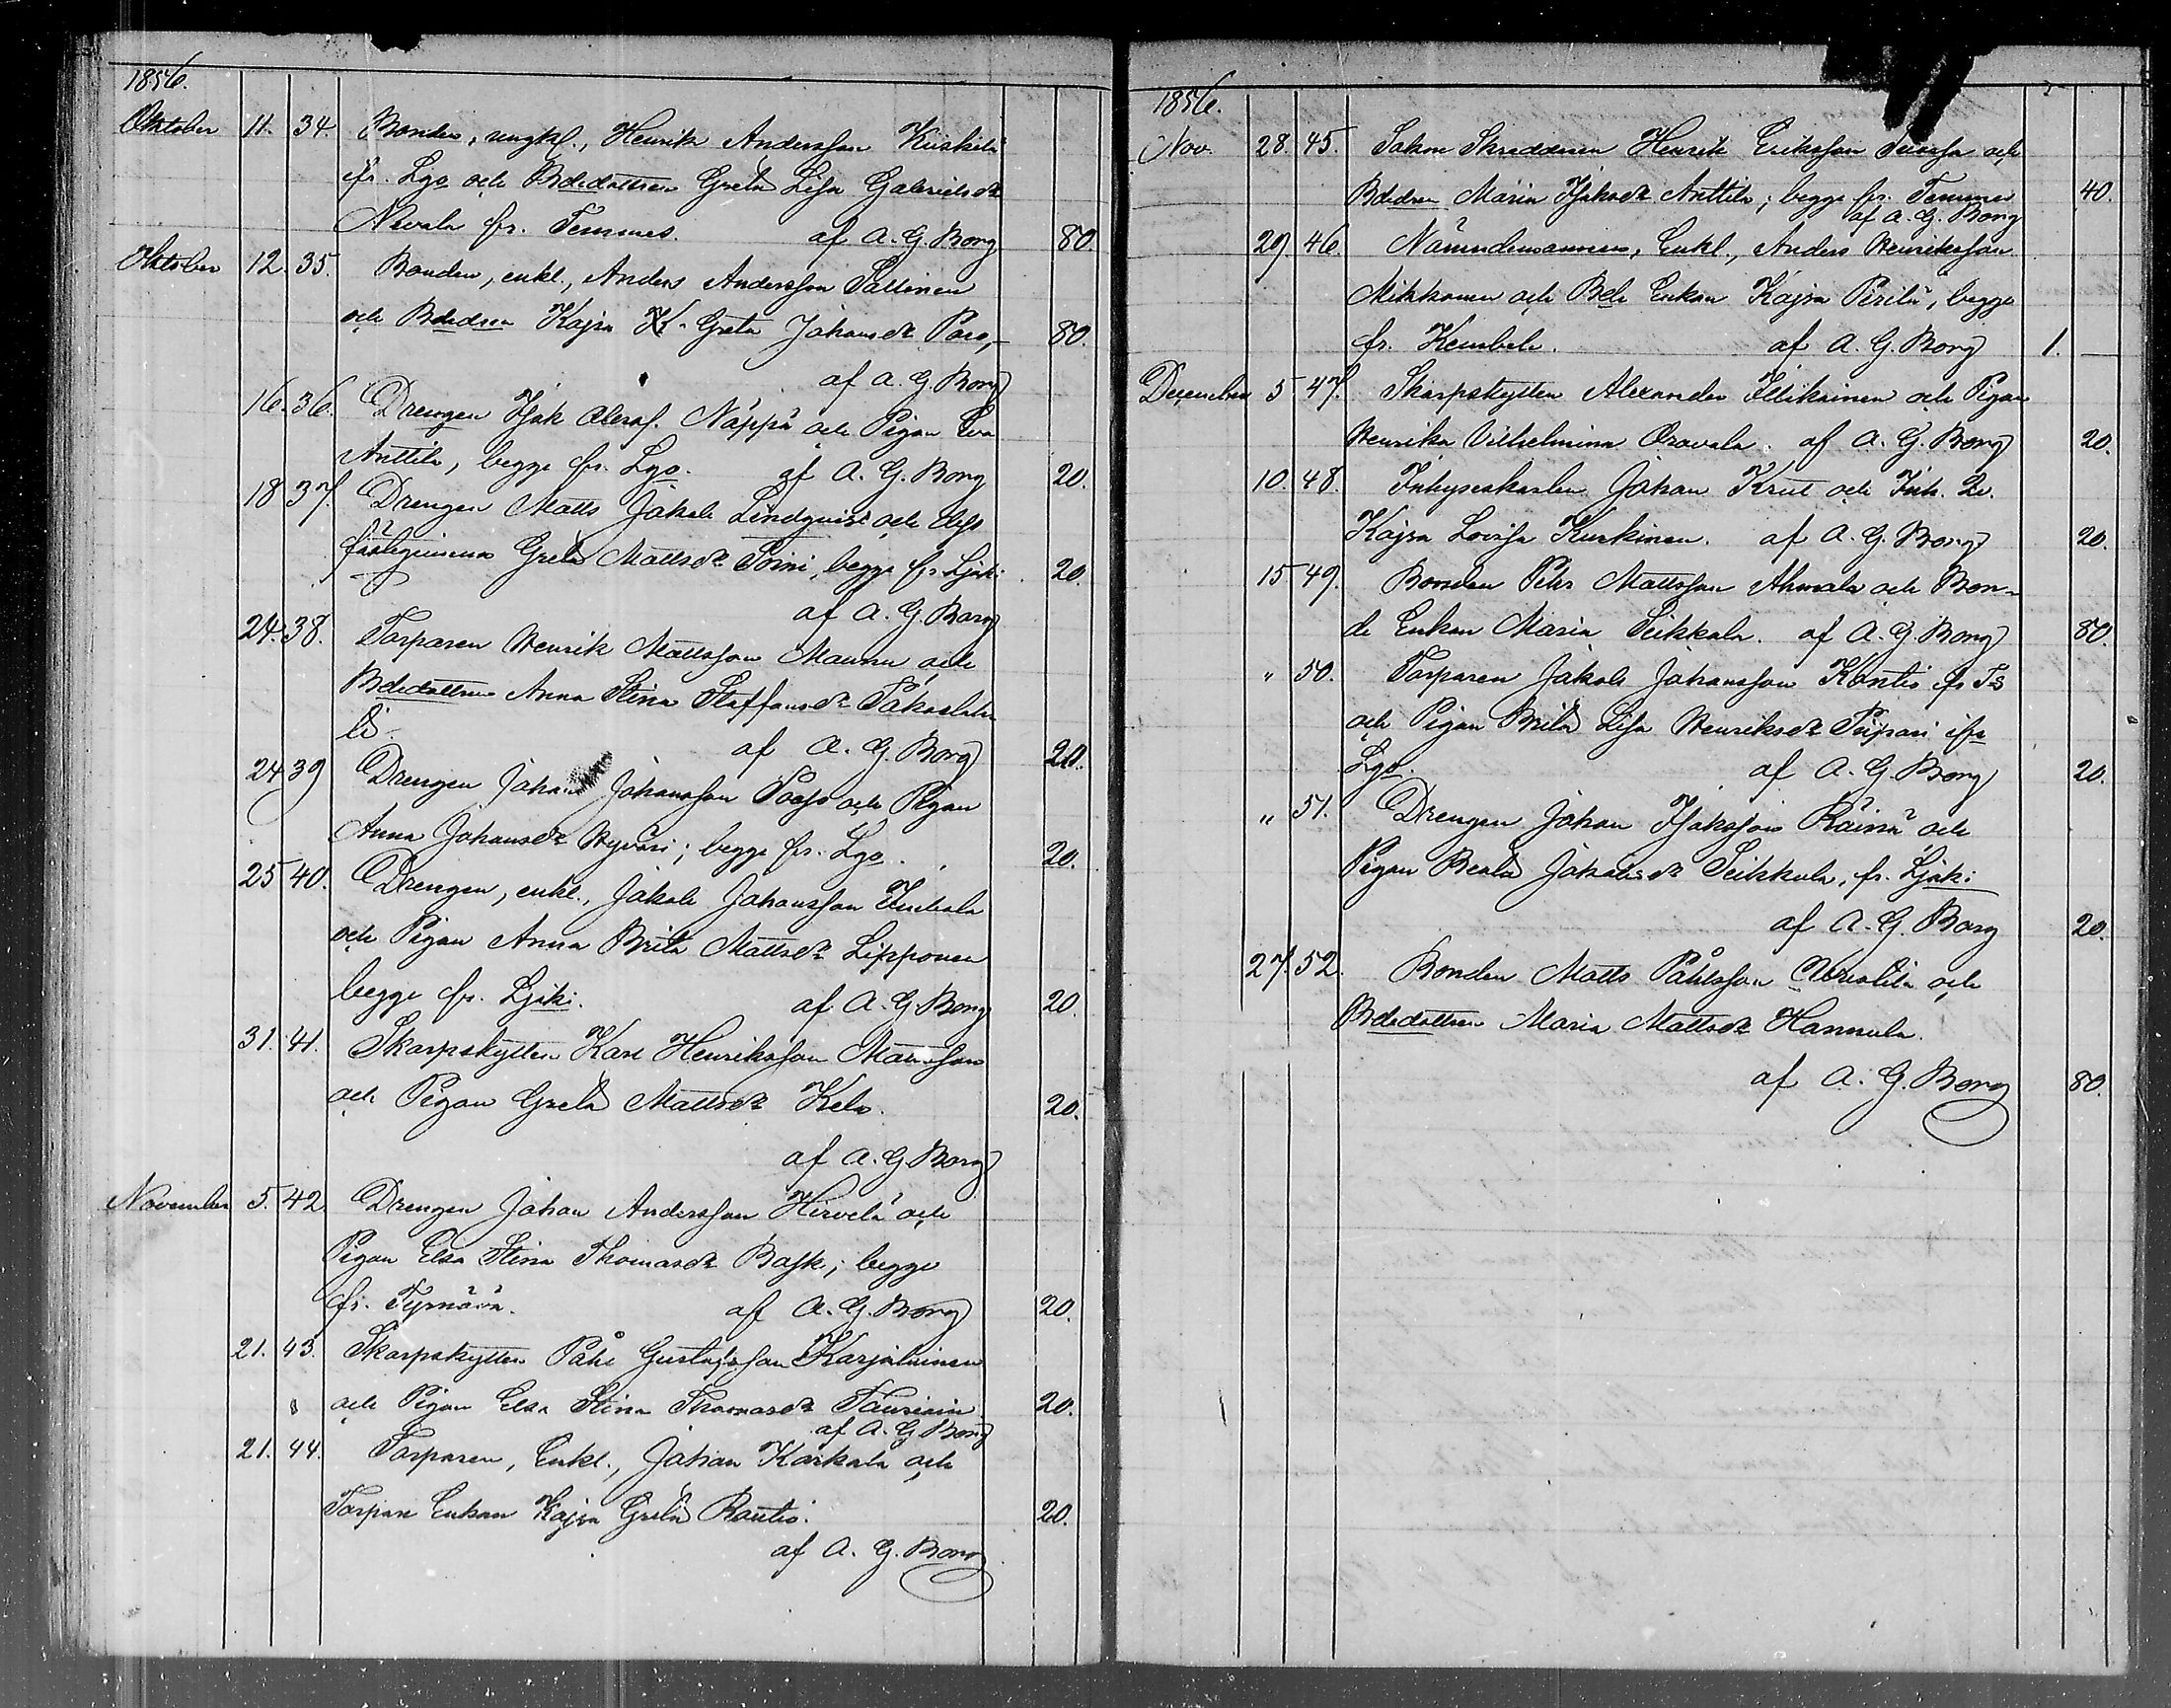 1856.
Oktober 11. 34. Bonden, ungkl., Henrik Andersson Kiiskilä
fr. Lgo och Bdedottren Greta Lisa Gabrielsdr
Nevala fr. Temmes. af A. G. Borg 80
Oktober 12. 35. Bonden, enkl., Anders Andersson Sallinen
och Bdedren Kajsa Greta Johansdr Paso, 80.
af A. G. Borg
16. 36. Drengen Isak Olofsf. Näppä och Pigan Eva
Anttila, begge fr. Lgo. af A. G. Borg 20.
18 37. Drengen Matts Jakob Lindqvist och
Greta Mattsdr Soini, begge fr. Ljoki 20.
af A. G. Borg
24. 38. Torparen Henrik Mattsson Maunu och
Bdedottren Anna Stina Staffansdr
af A. G. Borg 20.
24 39 Drengen Johan Johansson och Pigan
Anna Johansdr Hyväri; begge fr. Lgo. 20.
25 40. Drengen, enkl., Jakob Johansson
och Pigan Anna Brita Mattsdr Lipponen
begge fr. Ljoki. af A. G. Borg 20
31. 41. Skarpskytten Karl Henriksson
och Pigan Greta Mattsdr Kela. 20.
af A. G. Borg
November 5. 42 Drengen Johan Andersson Hirvelä och
Pigan Elsa Stina Thomasdr Bask; begge
fr. Tyrnävä. af A. G. Borg 20.
21. 43. Skarpskytten Påhl Gustafsson Karjalainen
och Pigan Elsa Stina Thomasdr 20.
af A. G. Borg
21. 44. Torparen, Enkl., Johan Karkala och
Torpare Enkan Kajsa Greta Rautio. 20.
af A. G. Borg
1856.
Nov. 28. 45. Sokne Skreddaren Henrik Eriksson och
Bdedren Maria Isaksdr Anttila; begge fr. Temmes 40.
af A. G. Borg
29. 46. Nämndemannen, Enkl., Anders Henriksson
Mikkonen och Bde Enkan Kajsa Perilä, begge
fr. Kembele. af A. G. Borg 1. —
December 5 47. Skarpskytten Alexander Illikainen och Pigan
Henrika Vilhelmina Oravala. af A. G. Borg 20.
10. 48. Inhyseskarlen Johan Krut och Inh.
Kajsa Lovisa Kurkinen. af A. G. Borg 20.
15 49. Bonden Petter Mattsson Ahmala och Bon-
de Enkan Maria Seikkala. af A. G. Borg 80.
" 50. Torparen Jakob Johansson Kontio fr. Is
och Pigan Brita Lisa Henriksdr Piipari fr
Lgo. af A. G. Borg 20.
" 51. Drengen Johan Isaksson Räinä och
Pigan Beata Jakobsdr Seikkula, fr. Ljoki
af A. G. Borg 20.
27. 52. Bonden Matts Påhlsson och
Bdedottren Maria Mattsdr Hannula.
af A. G. Borg 80.